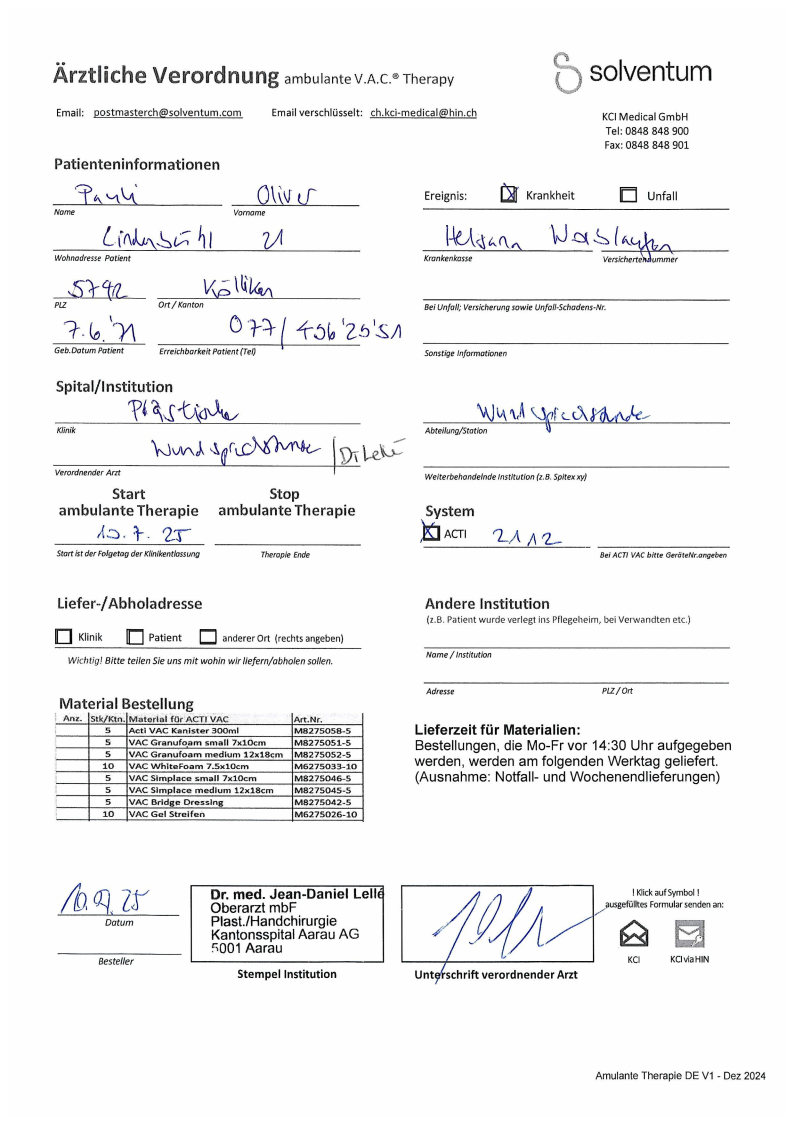 Ärztliche Verordnung ambulante V.A.C.® Therapy
solventum
Email: postmasterch@solventum.com Email verschlüsselt: ch.kci-medical@hin.ch
KCI Medical GmbH
Tel: 0848 848 900
Fax: 0848 848 901
Patienteninformationen
Pauli Oliver
Name Vorname
Ereignis: Krankheit Unfall
21
Wohnadresse Patient
Helsana
Krankenkasse Versichertennummer
5742 Kölliken
PLZ Ort / Kanton
Bei Unfall; Versicherung sowie Unfall-Schadens-Nr.
7.6.'71 077/ 456'25'51
Geb.Datum Patient Erreichbarkeit Patient (Tel)
Sonstige Informationen
Spital/Institution
Klinik
Wundsprechstunde
Abteilung/Station
Wundsprechstunde / Dr Lellé
Verordnender Arzt
Weiterbehandelnde Institution (z.B. Spitex xy)
Start ambulante Therapie
Stop ambulante Therapie
System
7. 25
ACTI 2112
Start ist der Folgetag der Klinikentlassung Therapie Ende
Bei ACTI VAC bitte GeräteNr.angeben
Liefer-/Abholadresse
Klinik Patient anderer Ort (rechts angeben)
Wichtig! Bitte teilen Sie uns mit wohin wir liefern/abholen sollen.
Andere Institution
(z.B. Patient wurde verlegt ins Pflegeheim, bei Verwandten etc.)
Name / Institution
Adresse PLZ / Ort
Material Bestellung
Anz. Stk/Ktn. Material für ACTI VAC Art.Nr.
5 Acti VAC Kanister 300ml M8275058-5
5 VAC Granufoam small 7x10cm M8275051-5
5 VAC Granufoam medium 12x18cm M8275052-5
10 VAC WhiteFoam 7.5x10cm M6275033-10
5 VAC Simplace small 7x10cm M8275046-5
5 VAC Simplace medium 12x18cm M8275045-5
5 VAC Bridge Dressing M8275042-5
10 VAC Gel Streifen M6275026-10
Lieferzeit für Materialien:
Bestellungen, die Mo-Fr vor 14:30 Uhr aufgegeben
werden, werden am folgenden Werktag geliefert.
(Ausnahme: Notfall- und Wochenendlieferungen)
25
Datum
Besteller
Dr. med. Jean-Daniel Lellé
Oberarzt mbF
Plast./Handchirurgie
Kantonsspital Aarau AG
5001 Aarau
Stempel Institution
Unterschrift verordnender Arzt
! Klick auf Symbol !
ausgefülltes Formular senden an:
KCI KCI via HIN
Amulante Therapie DE V1 - Dez 2024